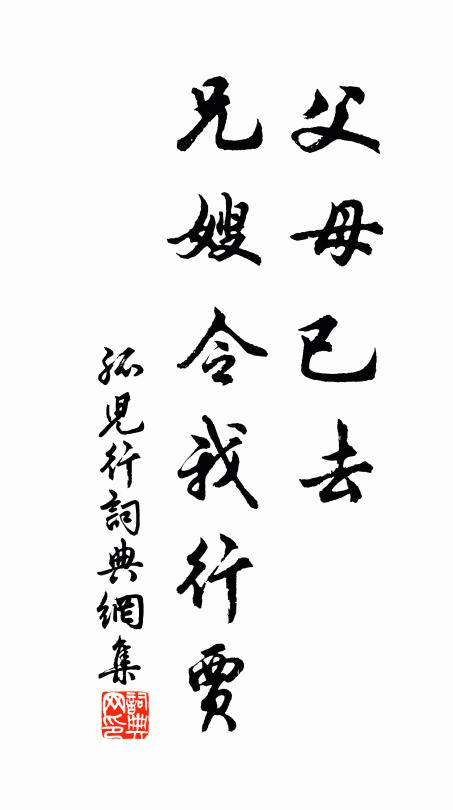 父母已去
兄嫂令我行賈
孤兒行詞典網集
詞典網印